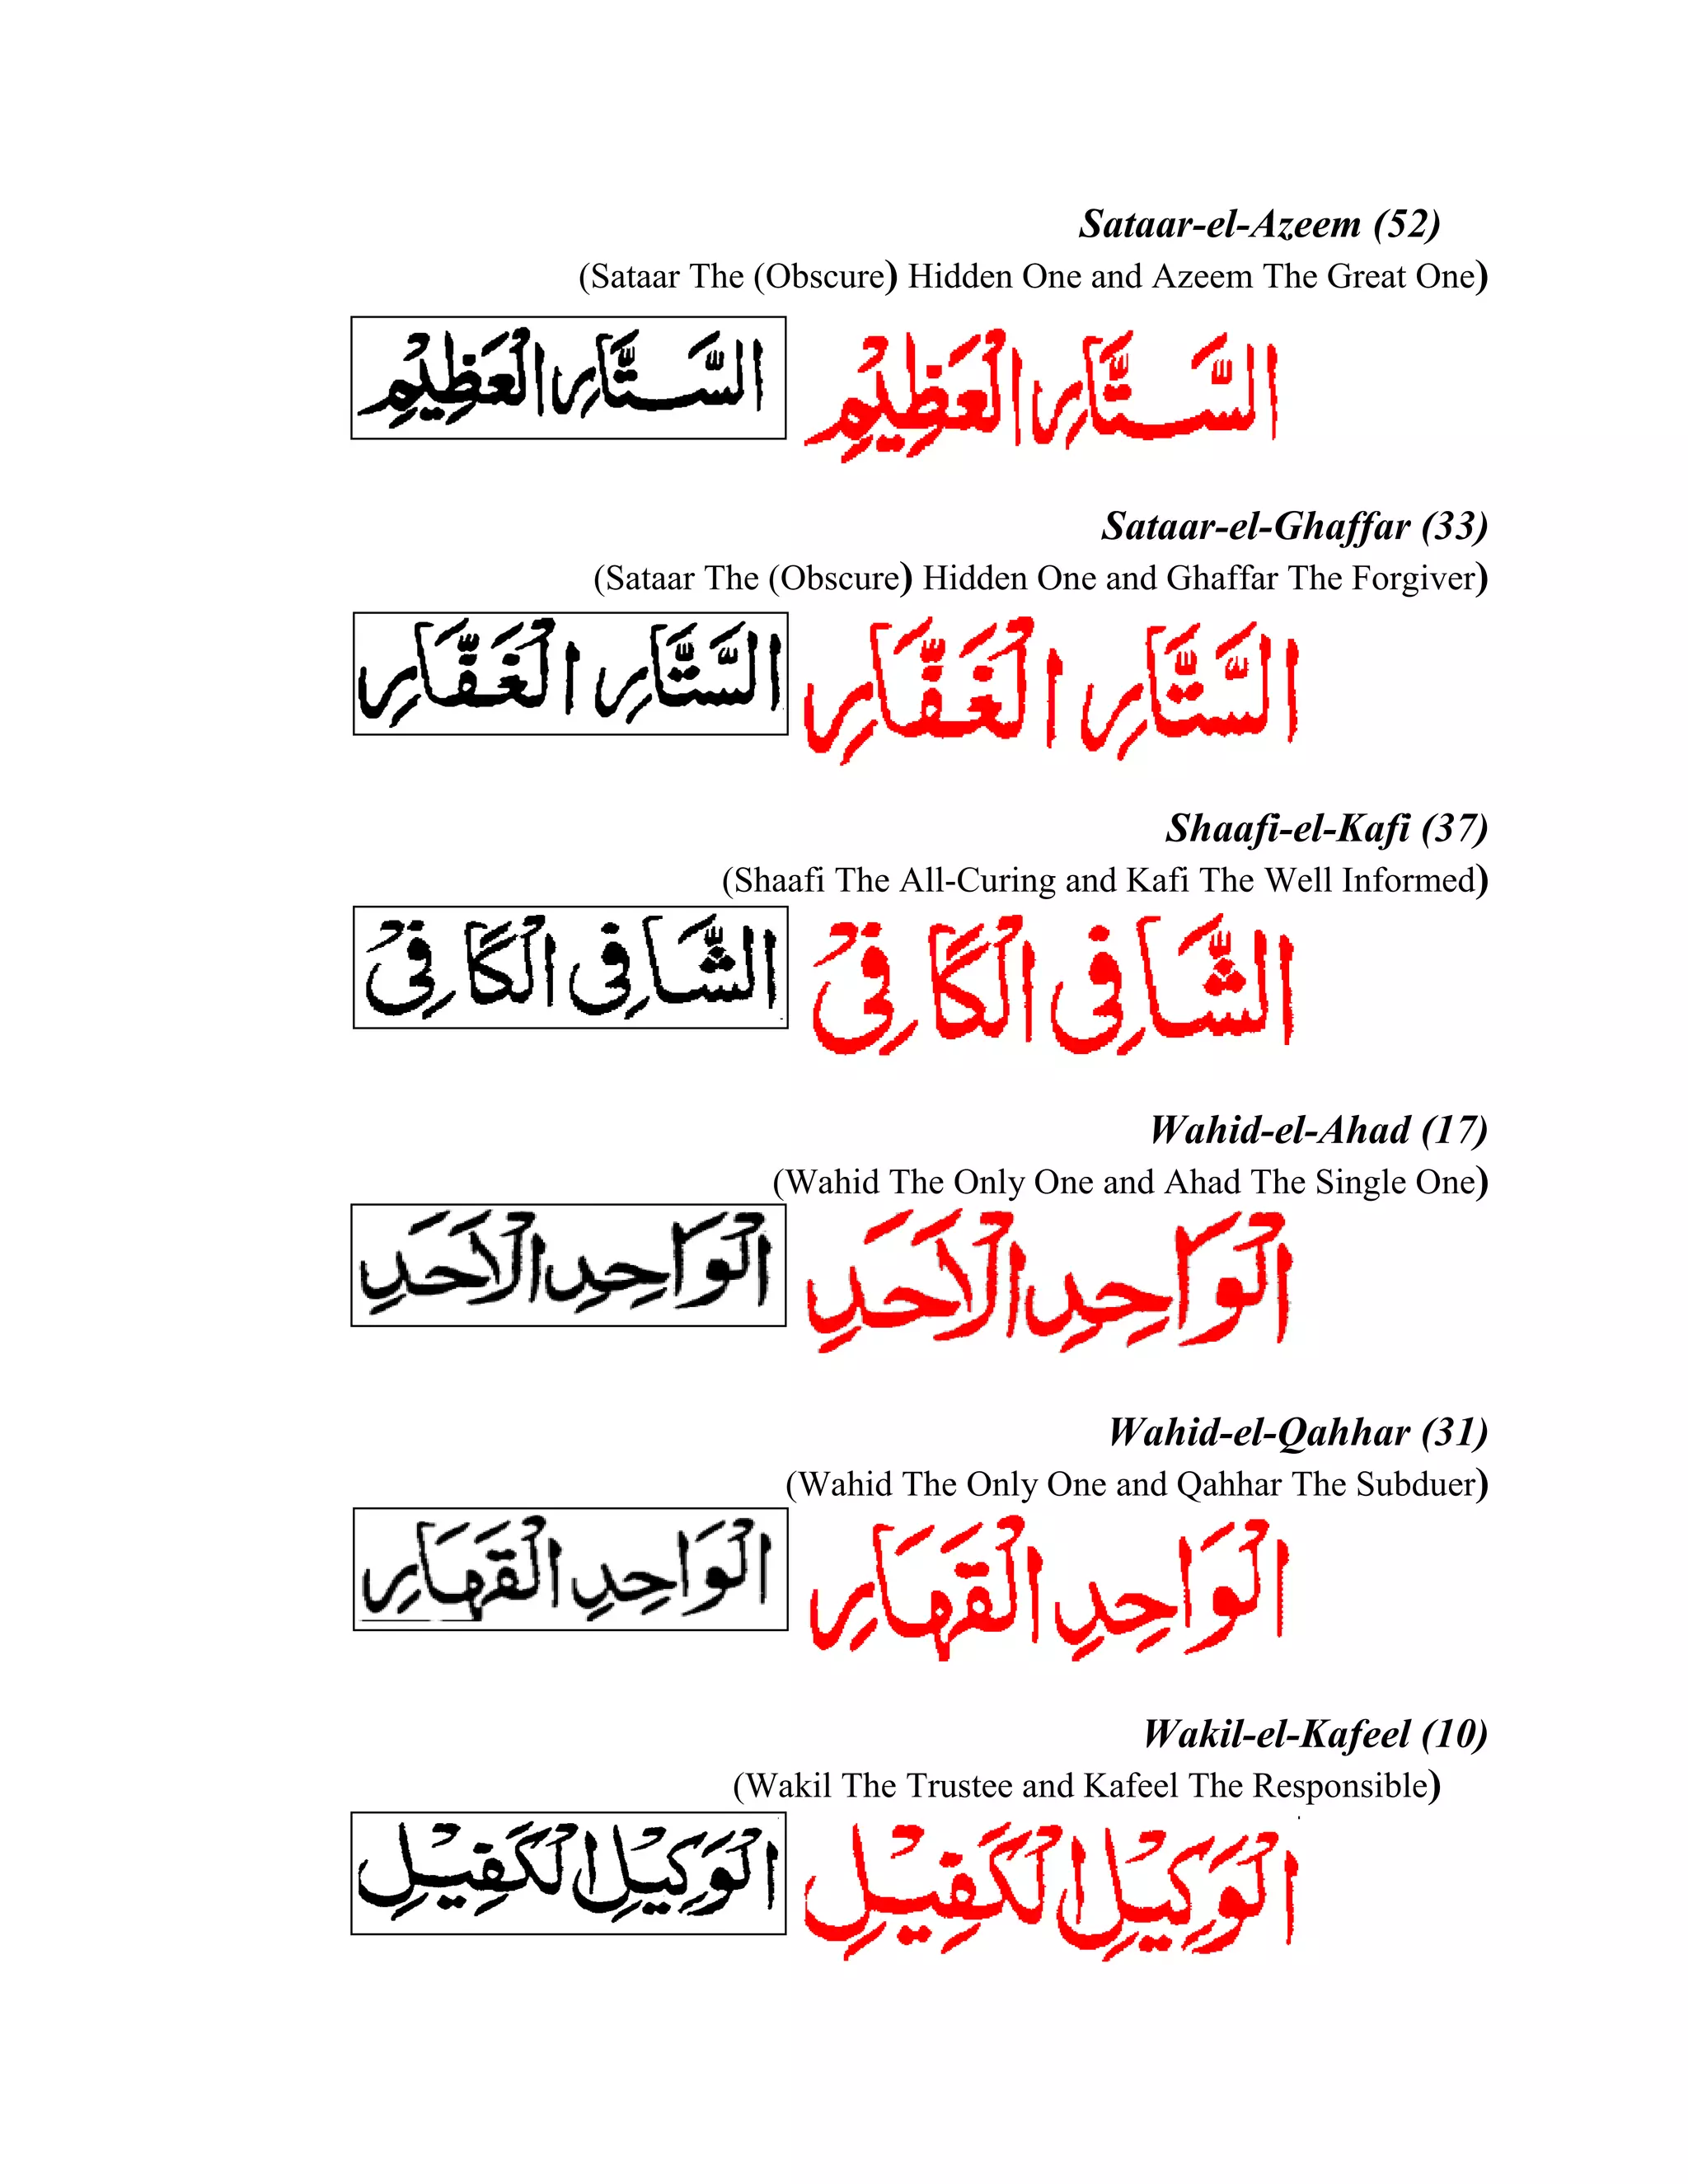 Sataar-el-Azeem (52)
(Sataar The (Obscure) Hidden One and Azeem The Great One)
السَّتَّارِ الْعَظِيْمِ السَّتَّارِ الْعَظِيْمِ
Sataar-el-Ghaffar (33)
(Sataar The (Obscure) Hidden One and Ghaffar The Forgiver)
السَّتَّارِ الْغَفَّارِ السَّتَّارِ الْغَفَّارِ
Shaafi-el-Kafi (37)
(Shaafi The All-Curing and Kafi The Well Informed)
الشَّافِى الْكَافِىْ الشَّافِى الْكَافِىْ
Wahid-el-Ahad (17)
(Wahid The Only One and Ahad The Single One)
الْوَاحِدِ الْاَحَدِ الْوَاحِدِ الْاَحَدِ
Wahid-el-Qahhar (31)
(Wahid The Only One and Qahhar The Subduer)
الْوَاحِدِ الْقَهَارِ الْوَاحِدِ الْقَهَارِ
Wakil-el-Kafeel (10)
(Wakil The Trustee and Kafeel The Responsible)
الْوَكِيْلِ الْكَفِيْلِ الْوَكِيْلِ الْكَفِيْلِ